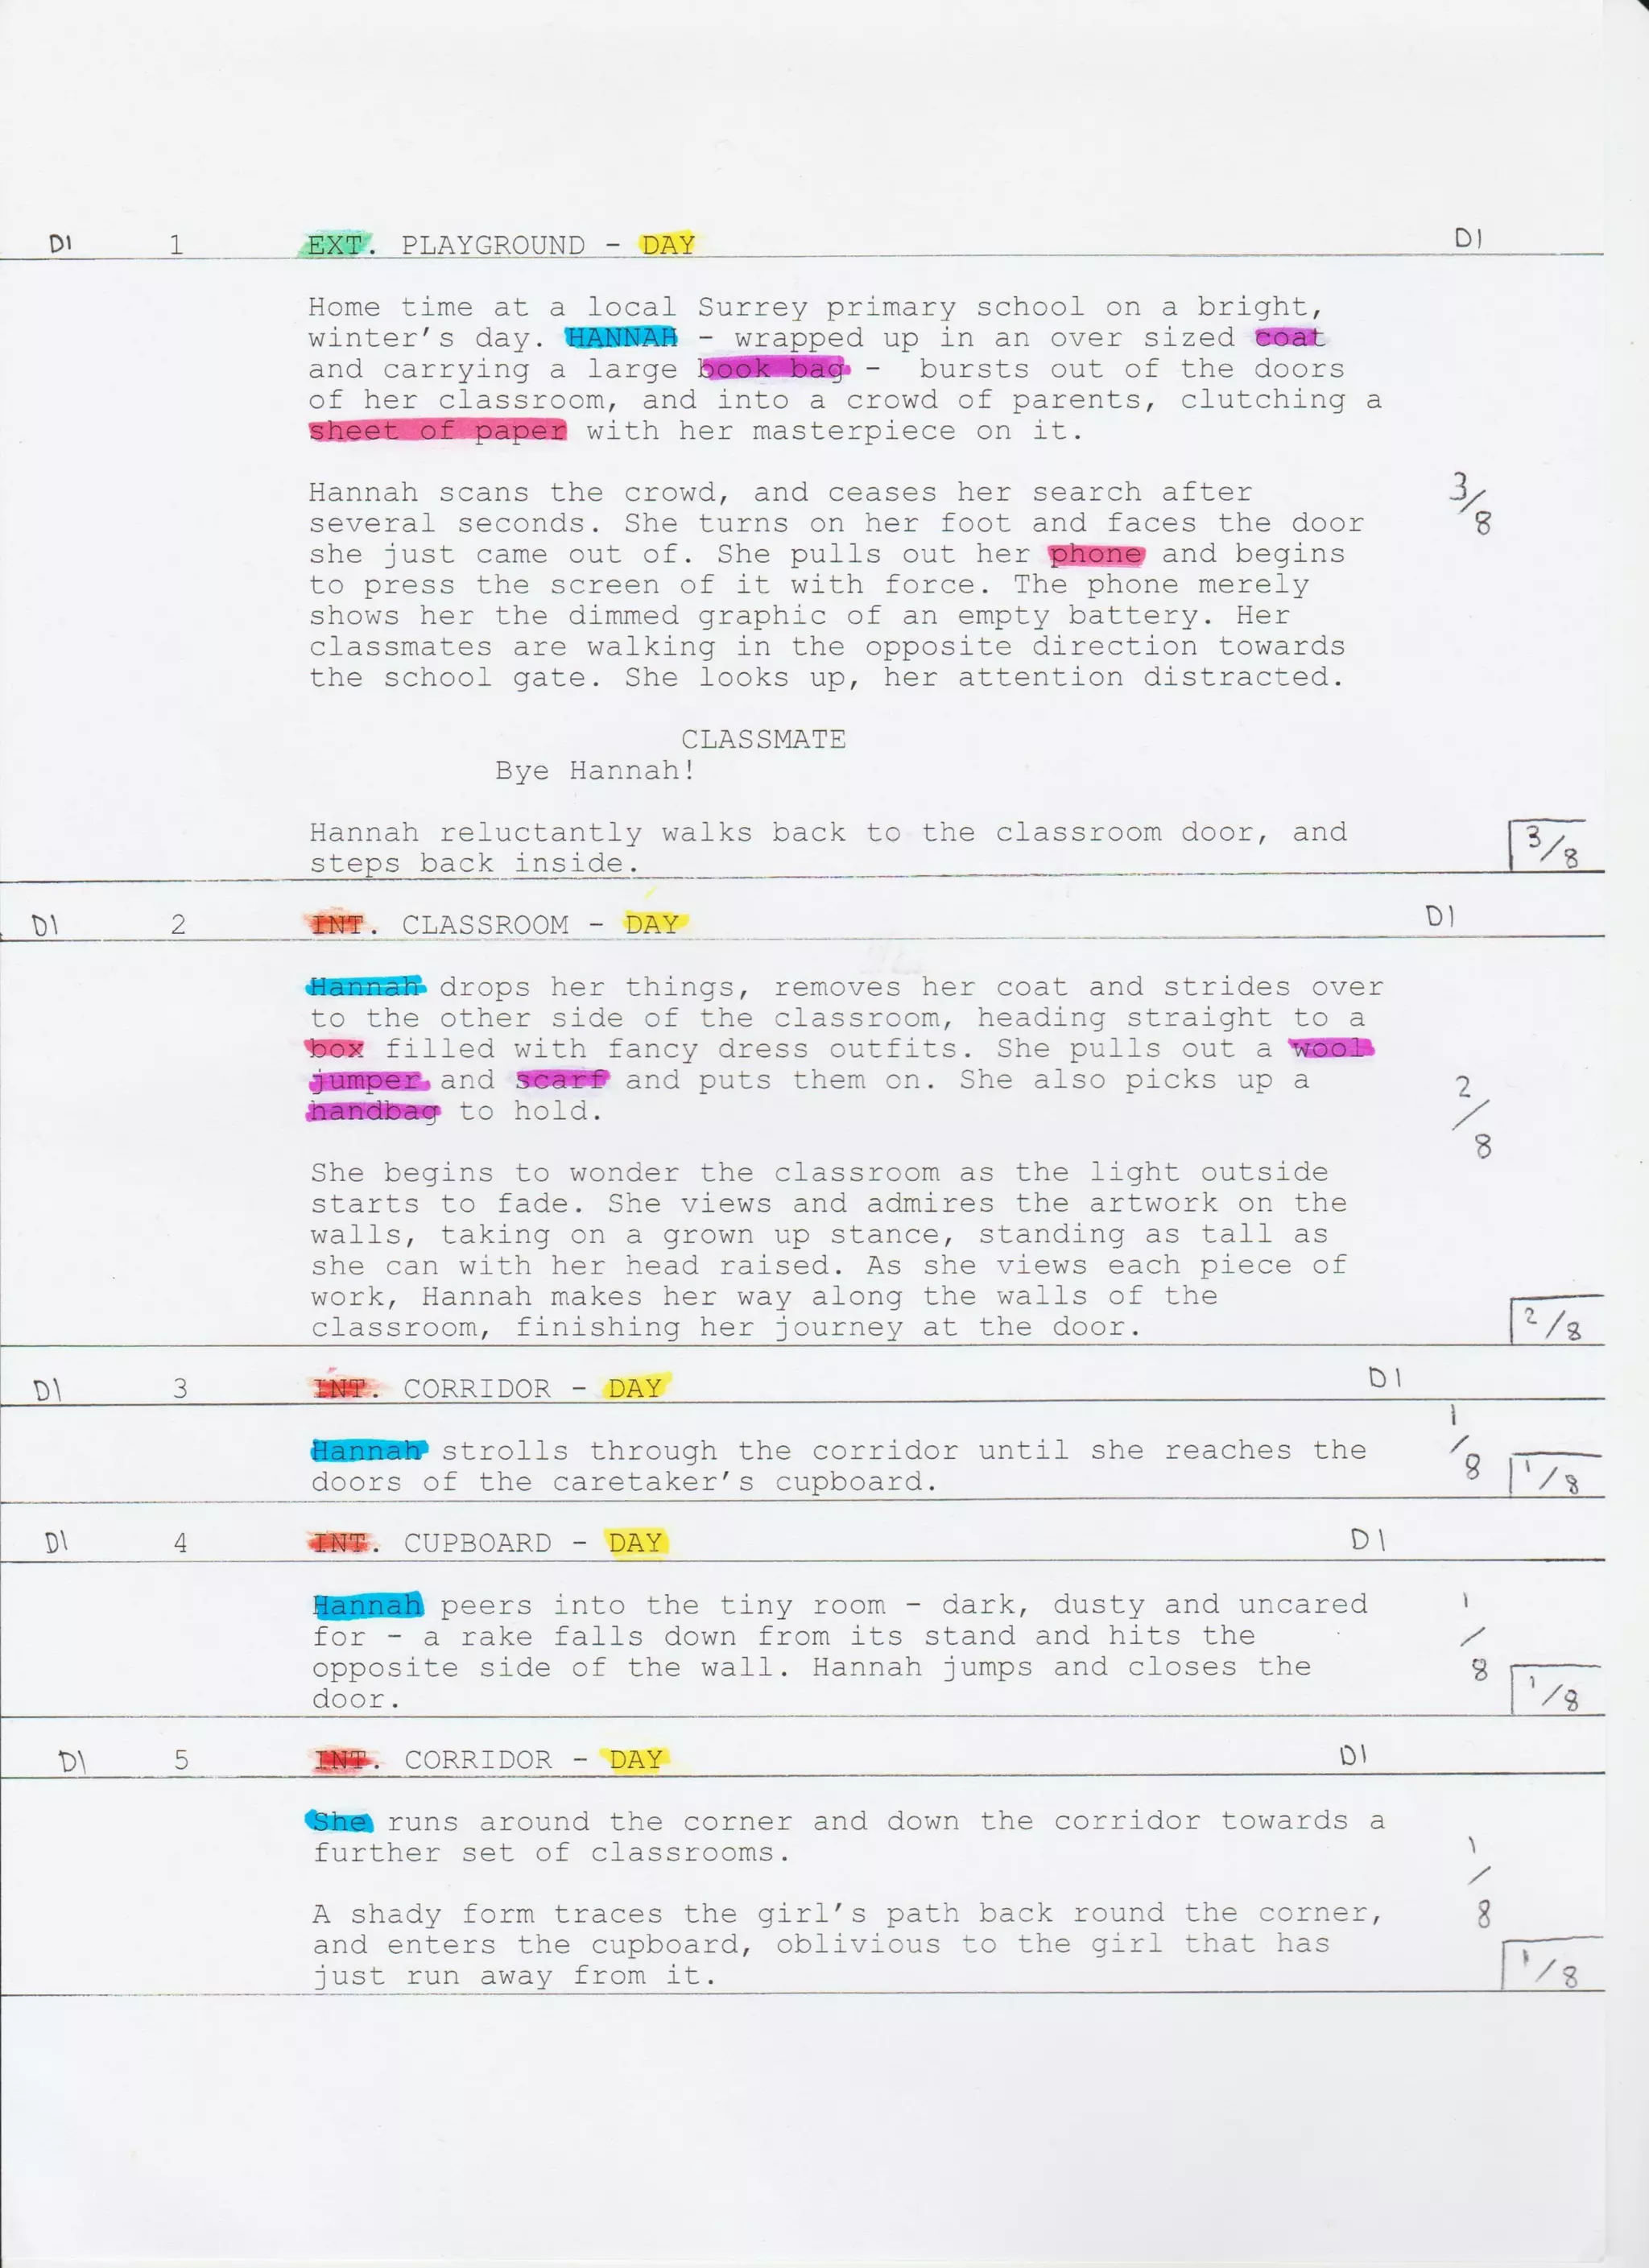 D1 1 EXT. PLAYGROUND - DAY D1
Home time at a local Surrey primary school on a bright,
winter's day. HANNAH - wrapped up in an over sized coat
and carrying a large book bag - bursts out of the doors
of her classroom, and into a crowd of parents, clutching a
sheet of paper with her masterpiece on it.
Hannah scans the crowd, and ceases her search after
several seconds. She turns on her foot and faces the door
she just came out of. She pulls out her phone and begins
to press the screen of it with force. The phone merely
shows her the dimmed graphic of an empty battery. Her
classmates are walking in the opposite direction towards
the school gate. She looks up, her attention distracted.
3/8
CLASSMATE
Bye Hannah!
Hannah reluctantly walks back to the classroom door, and
steps back inside.
3/8
D1 2 INT. CLASSROOM - DAY D1
Hannah drops her things, removes her coat and strides over
to the other side of the classroom, heading straight to a
box filled with fancy dress outfits. She pulls out a wool
jumper and scarf and puts them on. She also picks up a
handbag to hold.
2/8
She begins to wonder the classroom as the light outside
starts to fade. She views and admires the artwork on the
walls, taking on a grown up stance, standing as tall as
she can with her head raised. As she views each piece of
work, Hannah makes her way along the walls of the
classroom, finishing her journey at the door.
2/8
D1 3 INT. CORRIDOR - DAY D1
Hannah strolls through the corridor until she reaches the
doors of the caretaker's cupboard.
1/8 1/8
D1 4 INT. CUPBOARD - DAY D1
Hannah peers into the tiny room - dark, dusty and uncared
for - a rake falls down from its stand and hits the
opposite side of the wall. Hannah jumps and closes the
door.
1/8 1/8
D1 5 INT. CORRIDOR - DAY D1
She runs around the corner and down the corridor towards a
further set of classrooms.
1/8
A shady form traces the girl's path back round the corner,
and enters the cupboard, oblivious to the girl that has
just run away from it.
1/8